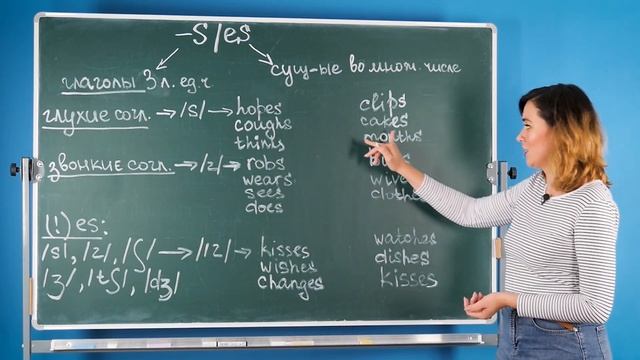 -s|es
глаголы 3 л. ед.ч. сущ-ые во множ. числе
глухие согл. → /s/ → hopes clips
coughs cakes
thinks months
звонкие согл. → /z/ → robs
wears wives
sees clothes
does
(!) es:
/s/, /z/, /ʃ/ → /ɪz/ → kisses watches
wishes dishes
/ʒ/, /tʃ/, /dʒ/ changes kisses